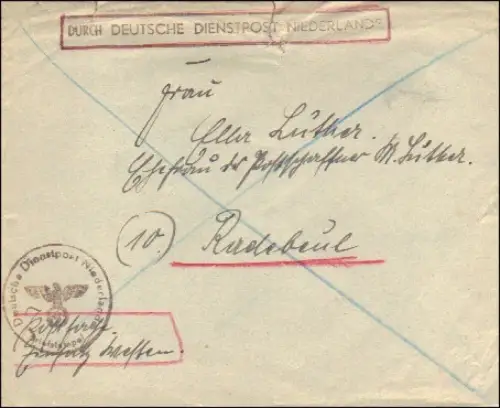 DURCH DEUTSCHE DIENSTPOST NIEDERLANDE
Frau
Ella Luther.
Ehefrau ds Postschaffner M. Luther.
(10.) Radebeul
Deutsche Dienstpost Niederlande
Briefstempel
Einsatz Westen.